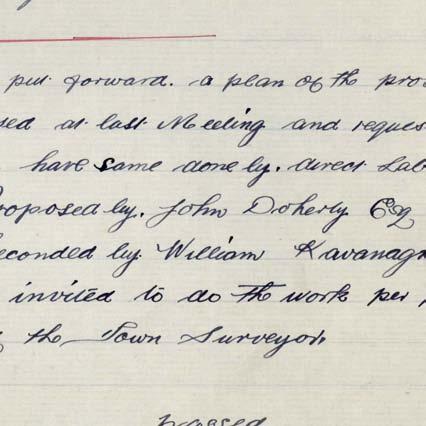 put forward. a plan of the pro
sed at last Meeting and reques
have same done by. direct Lab
roposed by. John Doherty Esq
econded by William Kavanagh
invited to do the work per
the Town Surveyor.
passed